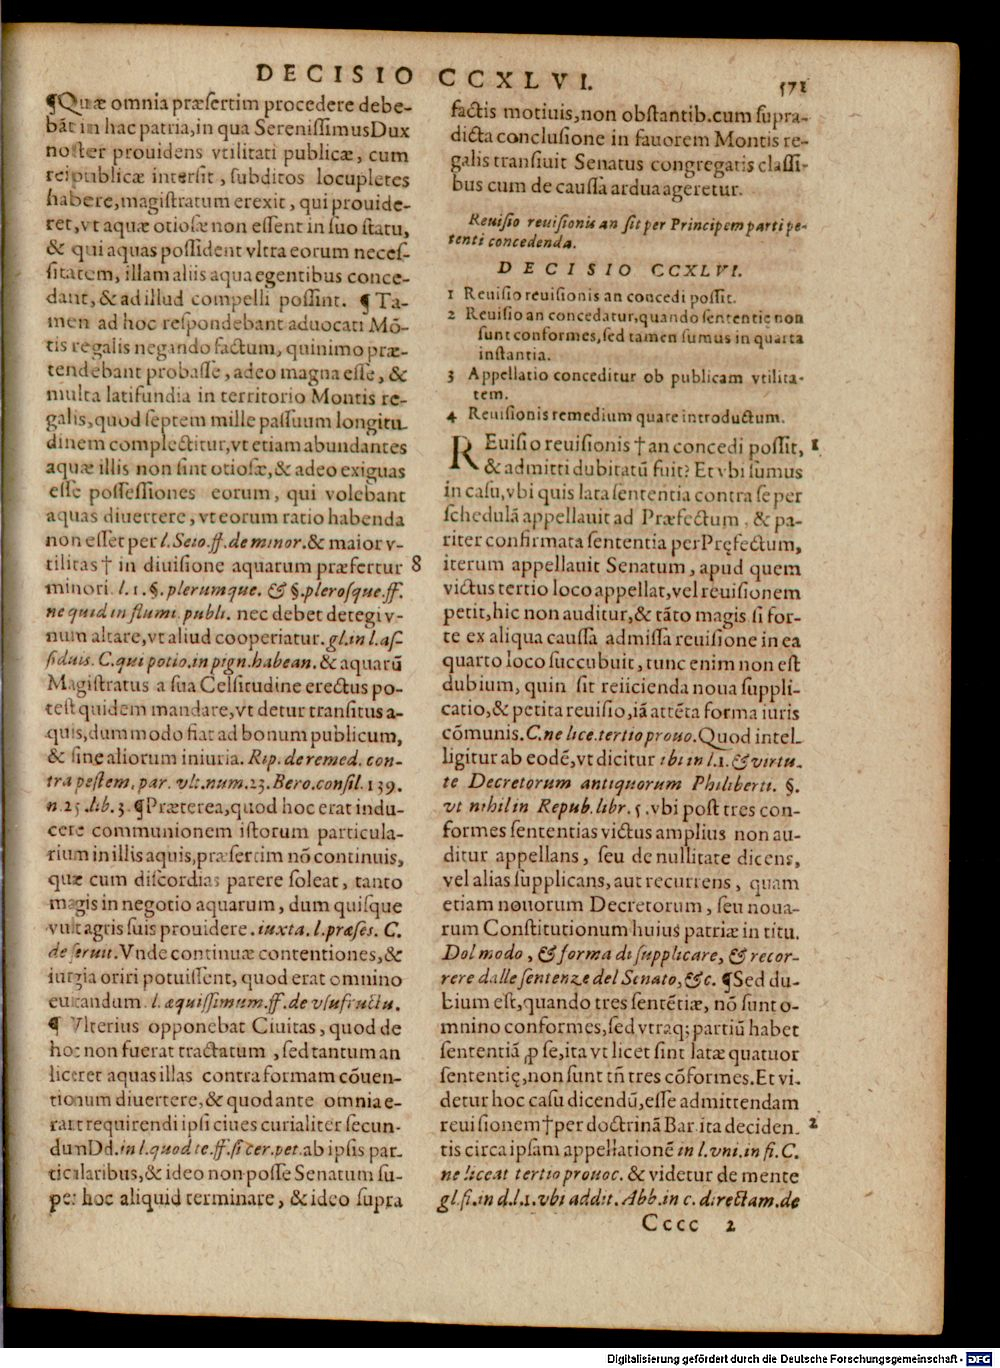 DECISIO CCXLVI. 571
¶Quæ omnia præsertim procedere debe-
bāt in hac patria, in qua Serenissimus Dux
noster prouidens vtilitati publicæ, cum
reipublicæ intersit, subditos locupletes
habere, magistratum erexit, qui prouide-
ret, vt aquæ otiosæ non essent in suo statu,
& qui aquas possident vltra eorum neces-
sitatem, illam aliis aqua egentibus conce-
dant, & ad illud compelli possint. ¶ Ta-
men ad hoc respondebant aduocati Mō-
tis regalis negando factum, quinimo præ-
tendebant probasse, adeo magna esse, &
multa latifundia in territorio Montis re-
galis, quod septem mille passuum longitu
dinem complectitur, vt etiam abundantes
aquæ illis non sint otiosæ, & adeo exiguas
esse possessiones eorum, qui volebant
aquas diuertere, vt eorum ratio habenda
non esset per l. Seio. ff. de minor. & maior v-
tilitas † in diuisione aquarum præfertur 8
minori. l. 1. §. plerumque. & §. plerosque. ff.
ne quid in flumi. publi. nec debet detegi v-
num altare, vt aliud cooperiatur. gl. in l. as-
siduis. C. qui potio. in pign. habean. & aquarū
Magistratus a sua Celsitudine erectus po-
test quidem mandare, vt detur transitus a-
quis, dummodo fiat ad bonum publicum,
& sine aliorum iniuria. Rip. de remed. con-
tra pestem. par. vlt. num. 23. Bero. consil. 139.
n. 25. lib. 3. ¶Præterea, quod hoc erat indu-
cere communionem istorum particula-
rium in illis aquis, præsertim nō continuis,
quæ cum discordias parere soleat, tanto
magis in negotio aquarum, dum quisque
vult agris suis prouidere. iuxta. l. præses. C.
de seruit. Vnde continuæ contentiones, &
iurgia oriri potuissent, quod erat omnino
euitandum. l. æquissimum. ff. de vsufructu.
¶ Vlterius opponebat Ciuitas, quod de
hoc non fuerat tractatum, sed tantum an
liceret aquas illas contra formam cōuen-
tionum diuertere, & quod ante omnia e-
rant requirendi ipsi ciues curialiter secun-
dum Dd. in l. quod te. ff. si cer. pet. ab ipsis par-
ticularibus, & ideo non posse Senatum su-
per hoc aliquid terminare, & ideo supra
factis motiuis, non obstantib. cum supra-
dicta conclusione in fauorem Montis re-
galis transiuit Senatus congregatis classi-
bus cum de caussa ardua ageretur.
Reuisio reuisionis an sit per Principem parti pe-
tenti concedenda.
DECISIO CCXLVI.
1 Reuisio reuisionis an concedi possit.
2 Reuisio an concedatur, quando sententię non
sunt conformes, sed tamen sumus in quarta
instantia.
3 Appellatio conceditur ob publicam vtilita-
tem.
4 Reuisionis remedium quare introductum.
REuisio reuisionis † an concedi possit, 1
& admitti dubitatū fuit? Et vbi sumus
in casu, vbi quis lata sententia contra se per
schedulā appellauit ad Præfectum, & pa-
riter confirmata sententia per Pręfectum,
iterum appellauit Senatum, apud quem
victus tertio loco appellat, vel reuisionem
petit, hic non auditur, & tāto magis si for-
te ex aliqua caussa admissa reuisione in ea
quarto loco succubuit, tunc enim non est
dubium, quin sit reiicienda noua suppli-
catio, & petita reuisio, iā attēta forma iuris
cōmunis. C. ne lice. tertio prouo. Quod intel
ligitur ab eodē, vt dicitur ibi in l. 1. & virtu-
te Decretorum antiquorum Philiberti. §.
vt nihil in Repub. libr. 5. vbi post tres con-
formes sententias victus amplius non au-
ditur appellans, seu de nullitate dicens,
vel alias supplicans, aut recurrens, quam
etiam nouorum Decretorum, seu noua-
rum Constitutionum huius patriæ in titu.
Dol modo, & forma di supplicare, & recor-
rere dalle sentenze del Senato, &c. ¶Sed du-
bium est, quando tres sentētiæ, nō sunt o-
mnino conformes, sed vtraq; partiū habet
sententiā p se, ita vt licet sint latæ quatuor
sententię, non sunt tñ tres cōformes. Et vi-
detur hoc casu dicendū, esse admittendam
reuisionem † per doctrinā Bar. ita deciden 2
tis circa ipsam appellationē in l. vni. in fi. C.
ne liceat tertio prouoc. & videtur de mente
gl. fi. in d. l. 1. vbi addit. Abb. in c. directam. de
Cccc 2
Digitalisierung gefördert durch die Deutsche Forschungsgemeinschaft - DFG